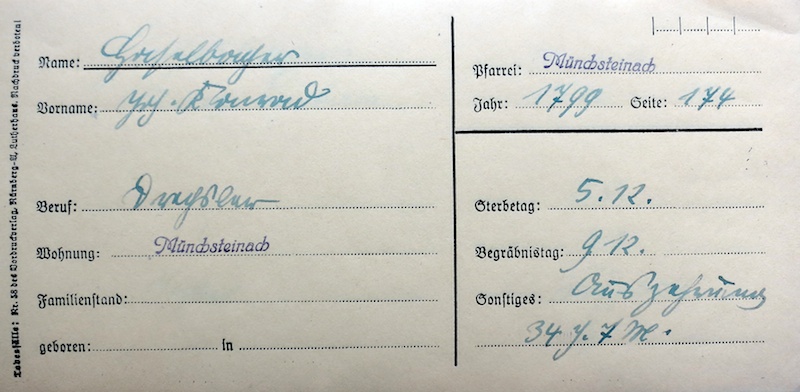 Name:
Vorname: Joh. Konrad
Beruf: Drechsler
Wohnung: Münchsteinach
Familienstand:
geboren: in
Pfarrei: Münchsteinach
Jahr: 1799 Seite: 174
Sterbetag: 5.12.
Begräbnistag: 9 12.
Sonstiges: Auszehrung
34 J. 7 M.
Todesfälle: Nr. 58 des Vordruckverlag, Nürnberg-N, Lutherhaus. Nachdruck verboten!